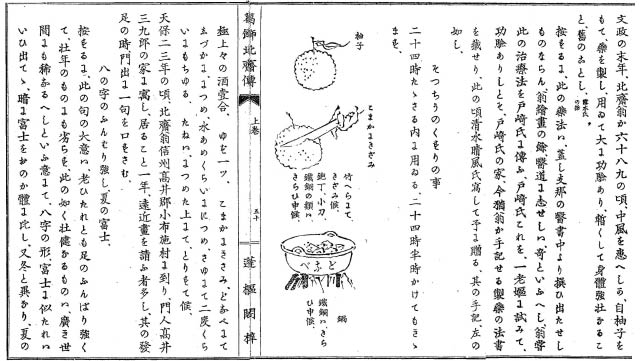 文政の末年、北齋翁が六十八九の頃、中風を患へしが、自柚子を
もて、藥を製し、用ゐて大に功驗あり、輙くして身體強壯なるこ
と、舊のごとし、
按ずるに、此の藥法ハ、蓋し支那の醫書中より撰ひ出たせし
ものならん、翁繪畫の餘醫道に志せしハ、奇といふへし、翁嘗
此の治療法を戸崎氏に傳ふ、戸崎氏これを、一老嫗に試みて、
功驗ありしとぞ、戸崎氏の家、今猶翁か手記せる製藥の法書
を藏せり、此の頃清水晴風氏寫して予に贈る、其の手記左の
如し、
そつちうのくすりの事
二十四時たゝざる内に用ゐる、二十四時半時かけてもきゝ
ませ、
柚子
こまかにきざみ
竹へらにて、
きざみ候、
庖丁、小刀、
鐵銅の類ハ、
きらひ申候、
どなべ
鍋
鐵銅ハ、きら
ひ申候、
葛飾北齋傳
上卷
五十
蓬樞閣梓
極上々の酒壹合、ゆを一ッ、こまかにきざみ、どなべにて
しづかにゝつめ、水あめくらいににつめ、さゆにて二度くら
いにもちゆる、たねハ、につめた上にて、とりすて候、
天保二三年の頃、北齋翁信州高井郡小布施村に到り、門人高井
三九郎の家に寓し、居ること一年、遠近畫を請ふ者多し、其の發
足の時門出に一句を口ずさむ、
八の字のふんばり強し夏の富士、
按ずるに、此の句の大意ハ、老ひたれとも足のふんばり強く
て、壯年のものにも劣らす、此の如く壯健なるものハ、廣き世
間にも稀なるへしといふ意にて、八字の形、富士に似たれハ
いひ出て、暗に富士をおのか體に比し、又冬と異なり、夏の